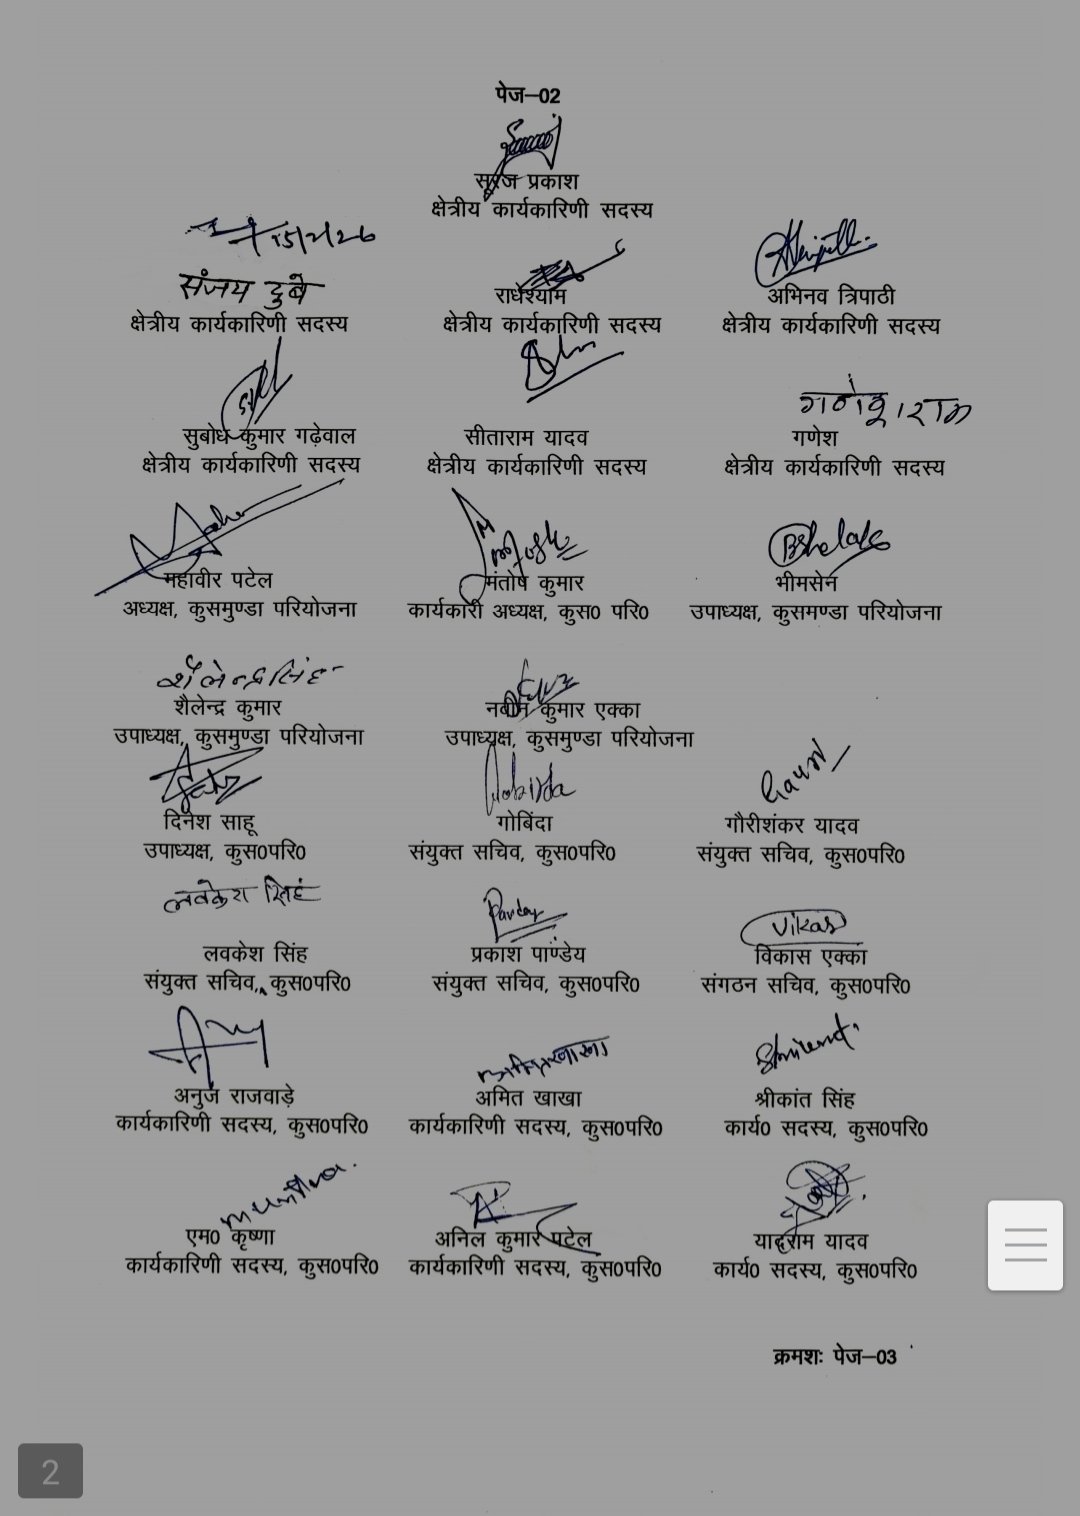 पेज–02
सूरज प्रकाश
क्षेत्रीय कार्यकारिणी सदस्य
संजय दुबे
राधेश्याम
अभिनव त्रिपाठी
क्षेत्रीय कार्यकारिणी सदस्य
क्षेत्रीय कार्यकारिणी सदस्य
क्षेत्रीय कार्यकारिणी सदस्य
गणेश राम
सुबोध कुमार गढ़ेवाल
सीताराम यादव
गणेश
क्षेत्रीय कार्यकारिणी सदस्य
क्षेत्रीय कार्यकारिणी सदस्य
क्षेत्रीय कार्यकारिणी सदस्य
महावीर पटेल
मंतोष कुमार
भीमसेन
अध्यक्ष, कुसमुण्डा परियोजना
कार्यकारी अध्यक्ष, कुस0 परि0
उपाध्यक्ष, कुसमण्डा परियोजना
शैलेन्द्र सिंह
शैलेन्द्र कुमार
नवीन कुमार एक्का
उपाध्यक्ष, कुसमुण्डा परियोजना
उपाध्यक्ष, कुसमुण्डा परियोजना
दिनेश साहू
गोबिंदा
गौरीशंकर यादव
उपाध्यक्ष, कुस0परि0
संयुक्त सचिव, कुस0परि0
संयुक्त सचिव, कुस0परि0
लवकेश सिंह
Pandey
Vikas
लवकेश सिंह
प्रकाश पाण्डेय
विकास एक्का
संयुक्त सचिव, कुस0परि0
संयुक्त सचिव, कुस0परि0
संगठन सचिव, कुस0परि0
अनुज राजवाड़े
अमित खाखा
श्रीकांत सिंह
कार्यकारिणी सदस्य, कुस0परि0
कार्यकारिणी सदस्य, कुस0परि0
कार्य0 सदस्य, कुस0परि0
एम0 कृष्णा
अनिल कुमार पटेल
यादराम यादव
कार्यकारिणी सदस्य, कुस0परि0
कार्यकारिणी सदस्य, कुस0परि0
कार्य0 सदस्य, कुस0परि0
क्रमशः पेज–03
2